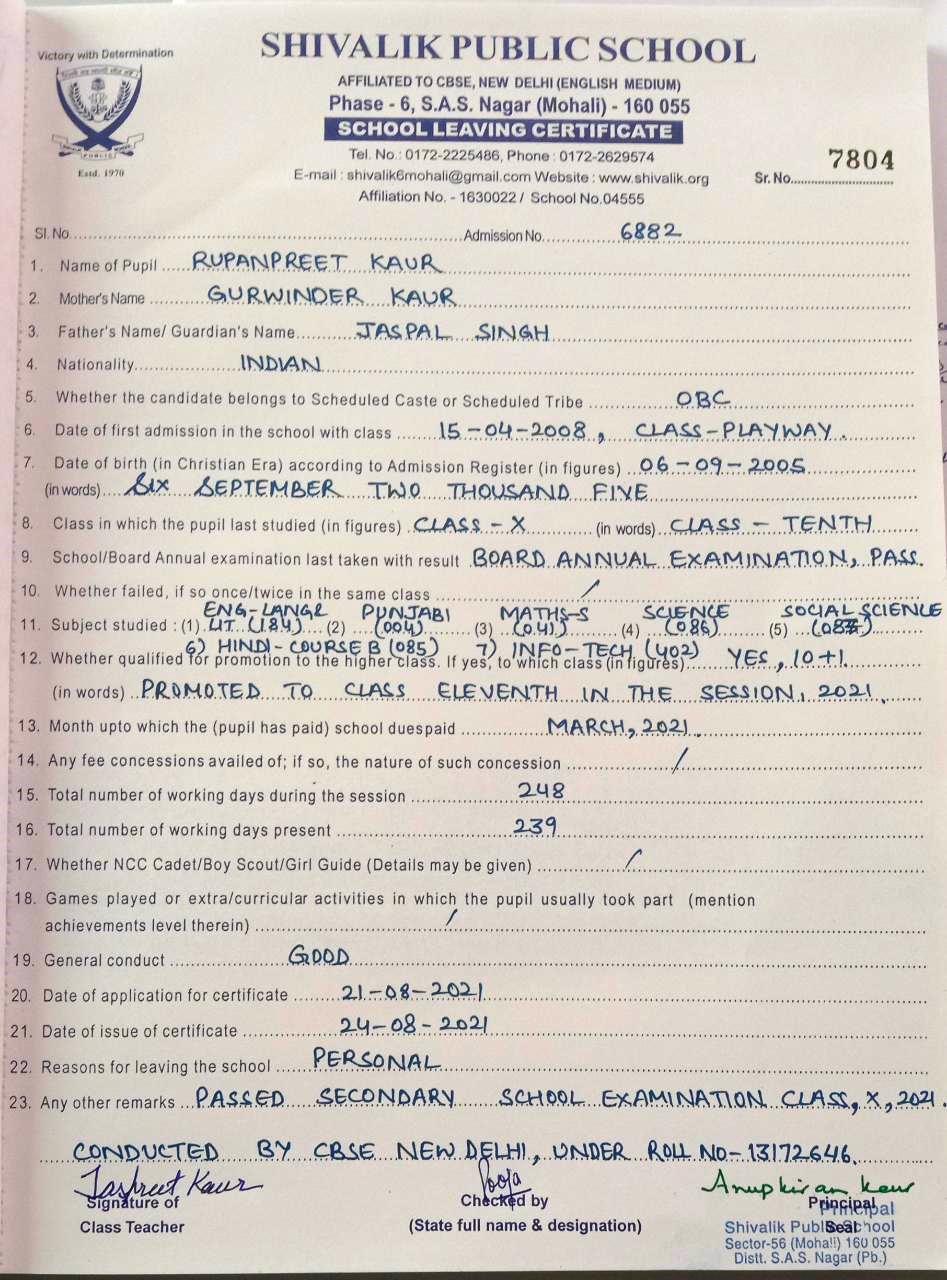 Victory with Determination
SHIVALIK PUBLIC SCHOOL
AFFILIATED TO CBSE, NEW DELHI (ENGLISH MEDIUM)
Phase - 6, S.A.S. Nagar (Mohali) - 160 055
SCHOOL LEAVING CERTIFICATE
Tel. No.: 0172-2225486, Phone : 0172-2629574
E-mail : shivalik6mohali@gmail.com Website : www.shivalik.org
Affiliation No. - 1630022 / School No.04555
PUBLIC
Estd. 1970
Sr. No. 7804
Sl. No. Admission No. 6882
1. Name of Pupil RUPANPREET KAUR
2. Mother's Name GURWINDER KAUR
3. Father's Name/ Guardian's Name JASPAL SINGH
4. Nationality INDIAN
5. Whether the candidate belongs to Scheduled Caste or Scheduled Tribe OBC
6. Date of first admission in the school with class 15-04-2008, CLASS-PLAYWAY.
7. Date of birth (in Christian Era) according to Admission Register (in figures) 06-09-2005
(in words) SIX SEPTEMBER TWO THOUSAND FIVE
8. Class in which the pupil last studied (in figures) CLASS-X (in words) CLASS - TENTH
9. School/Board Annual examination last taken with result BOARD ANNUAL EXAMINATION, PASS.
10. Whether failed, if so once/twice in the same class /
ENG-LANG& PUNJABI MATHS-S SCIENCE SOCIAL SCIENCE
11. Subject studied : (1) LIT (184) (2) (004) (3) (041) (4) (086) (5) (087)
6) HINDI-COURSE B (085) 7) INFO-TECH (402)
12. Whether qualified for promotion to the higher class. If yes, to which class (in figures) YES, 10+1.
(in words) PROMOTED TO CLASS ELEVENTH IN THE SESSION, 2021.
13. Month upto which the (pupil has paid) school duespaid MARCH, 2021.
14. Any fee concessions availed of; if so, the nature of such concession /
15. Total number of working days during the session 248
16. Total number of working days present 239
17. Whether NCC Cadet/Boy Scout/Girl Guide (Details may be given) /
18. Games played or extra/curricular activities in which the pupil usually took part (mention
achievements level therein) /
19. General conduct GOOD
20. Date of application for certificate 21-08-2021
21. Date of issue of certificate 24-08-2021
22. Reasons for leaving the school PERSONAL
23. Any other remarks PASSED SECONDARY SCHOOL EXAMINATION CLASS, X, 2021.
CONDUCTED BY CBSE NEW DELHI, UNDER ROLL NO-13172646.
Jaspreet Kaur Pooja Anupkiran Kaur
Signature of Checked by Principal
Class Teacher (State full name & designation) Seal
Principal
Shivalik Public School
Sector-56 (Mohali) 160 055
Distt. S.A.S. Nagar (Pb.)